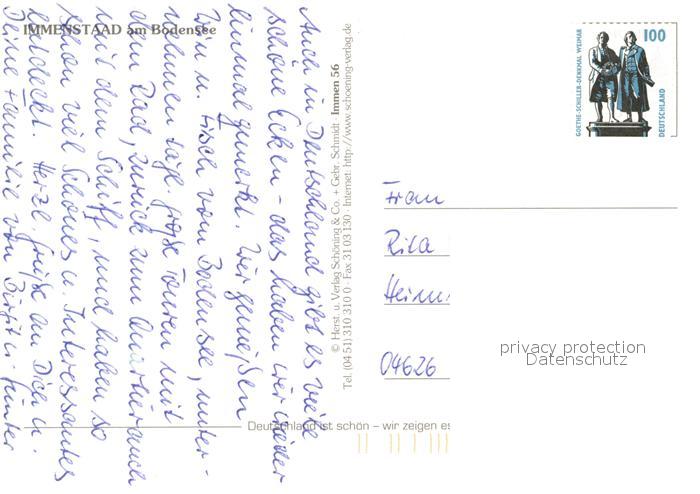 IMMENSTAAD am Bodensee
Auch in Deutschland gibt es viele
schöne Ecken - das haben wir wieder
einmal gemerkt. Wir genießen
Wein u. Fisch vom Bodensee, unter-
nehmen tage große Touren mit
dem Rad, zurück zum Quartier auch
mit dem Schiff, und haben so
schon viel Schönes u. Interessantes
entdeckt. Herzl. Grüße an Dich u.
Deine Familie von Birgit u. Günter
© Herst. u. Verlag Schöning & Co. + Gebr. Schmidt · Immen 56
Tel. (04 51) 310 310 0 · Fax 31 03 130 · Internet: http://www.schoening-verlag.de
GOETHE-SCHILLER-DENKMAL WEIMAR
100
DEUTSCHLAND
Frau
Rita
04626
privacy protection
Datenschutz
Deutschland ist schön – wir zeigen es